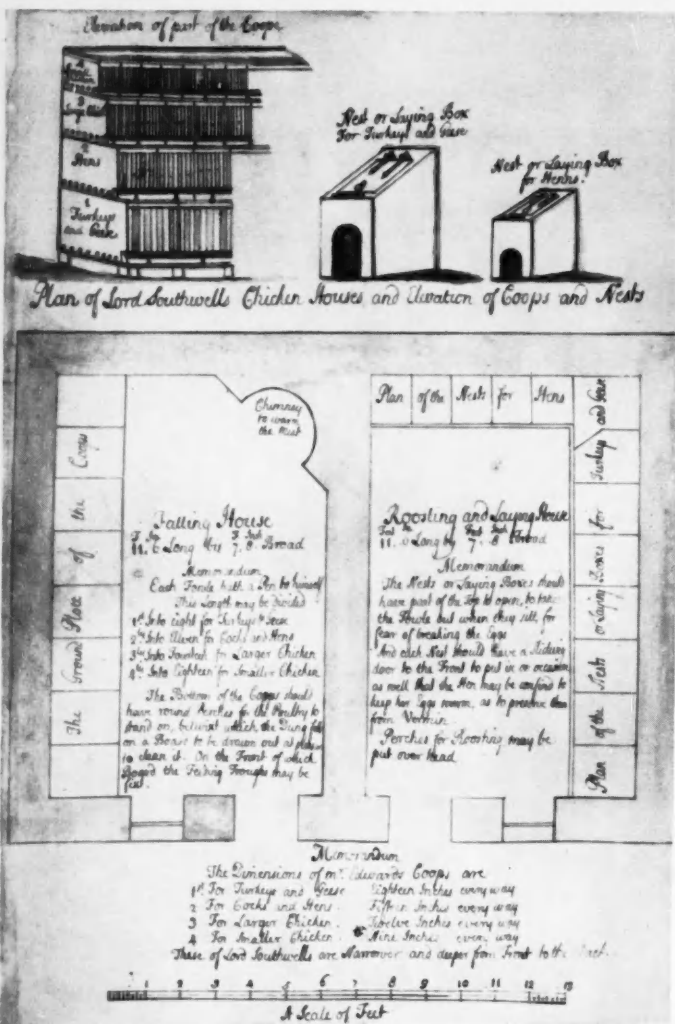 Elevation of part of the Coops
4
Smaller Chicken
3
Larger Chick
2
Hens
1
Turkeys
and Geese
Nest or Laying Box
For Turkeys and Geese
Nest or Laying Box
for Henns.
Plan of Lord Southwells Chicken Houses and Elevation of Coops and Nests
Chimney
to warm
the Rust
The Ground Place of the Coops
Fatting House
Ft Ins Ft Inch
11. 6 Long by 7. 8. Broad
Memorandum
Each Fowle hath a Pen to himself
This Length may be divided
1st Into Eight for Turkeys & Geese
2dly Into Eleven for Cocks and Hens
3dly Into Fourteen for Larger Chicken
4thly Into Eighteen for Smaller Chicken
The Bottom of the Coops should
have round Perches for the Poultry to
stand on, betwixt which the Dung falls
on a Board to be drawn out at pleasure
to clean it. On the Front of which
Board the Feeding Troughs may be
set.
Plan of the Nests for Hens
Plan of the Nests or Laying Boxes for Turkeys and Geese
Roosting and Laying House
Feet In Feet Inch
11. 6 Long by 7. 8 Broad
Memorandum
The Nests or Laying Boxes should
have part of the Top to open, to take
the Fowle out when they sitt, for
fear of breaking the Eggs
And each Nest should have a Sliding
door to the Front to put in on occasion
as well that the Hen may be confind to
keep her Eggs warm, as to preserve them
from Vermin
Perches for Roosting may be
put over head
Memorandum
The Dimensions of mr. Edwards Coops are
1st For Turkeys and Geese Eighteen Inches every way
2 For Cocks and Hens. Fifteen Inches every way
3 For Larger Chicken. Twelve Inches every way
4 For Smaller Chicken. Nine Inches every way
These of Lord Southwells are Narrower and deeper from Front to the Back.
1 2 3 4 5 6 7 8 9 10 11 12 13
A Scale of Feet